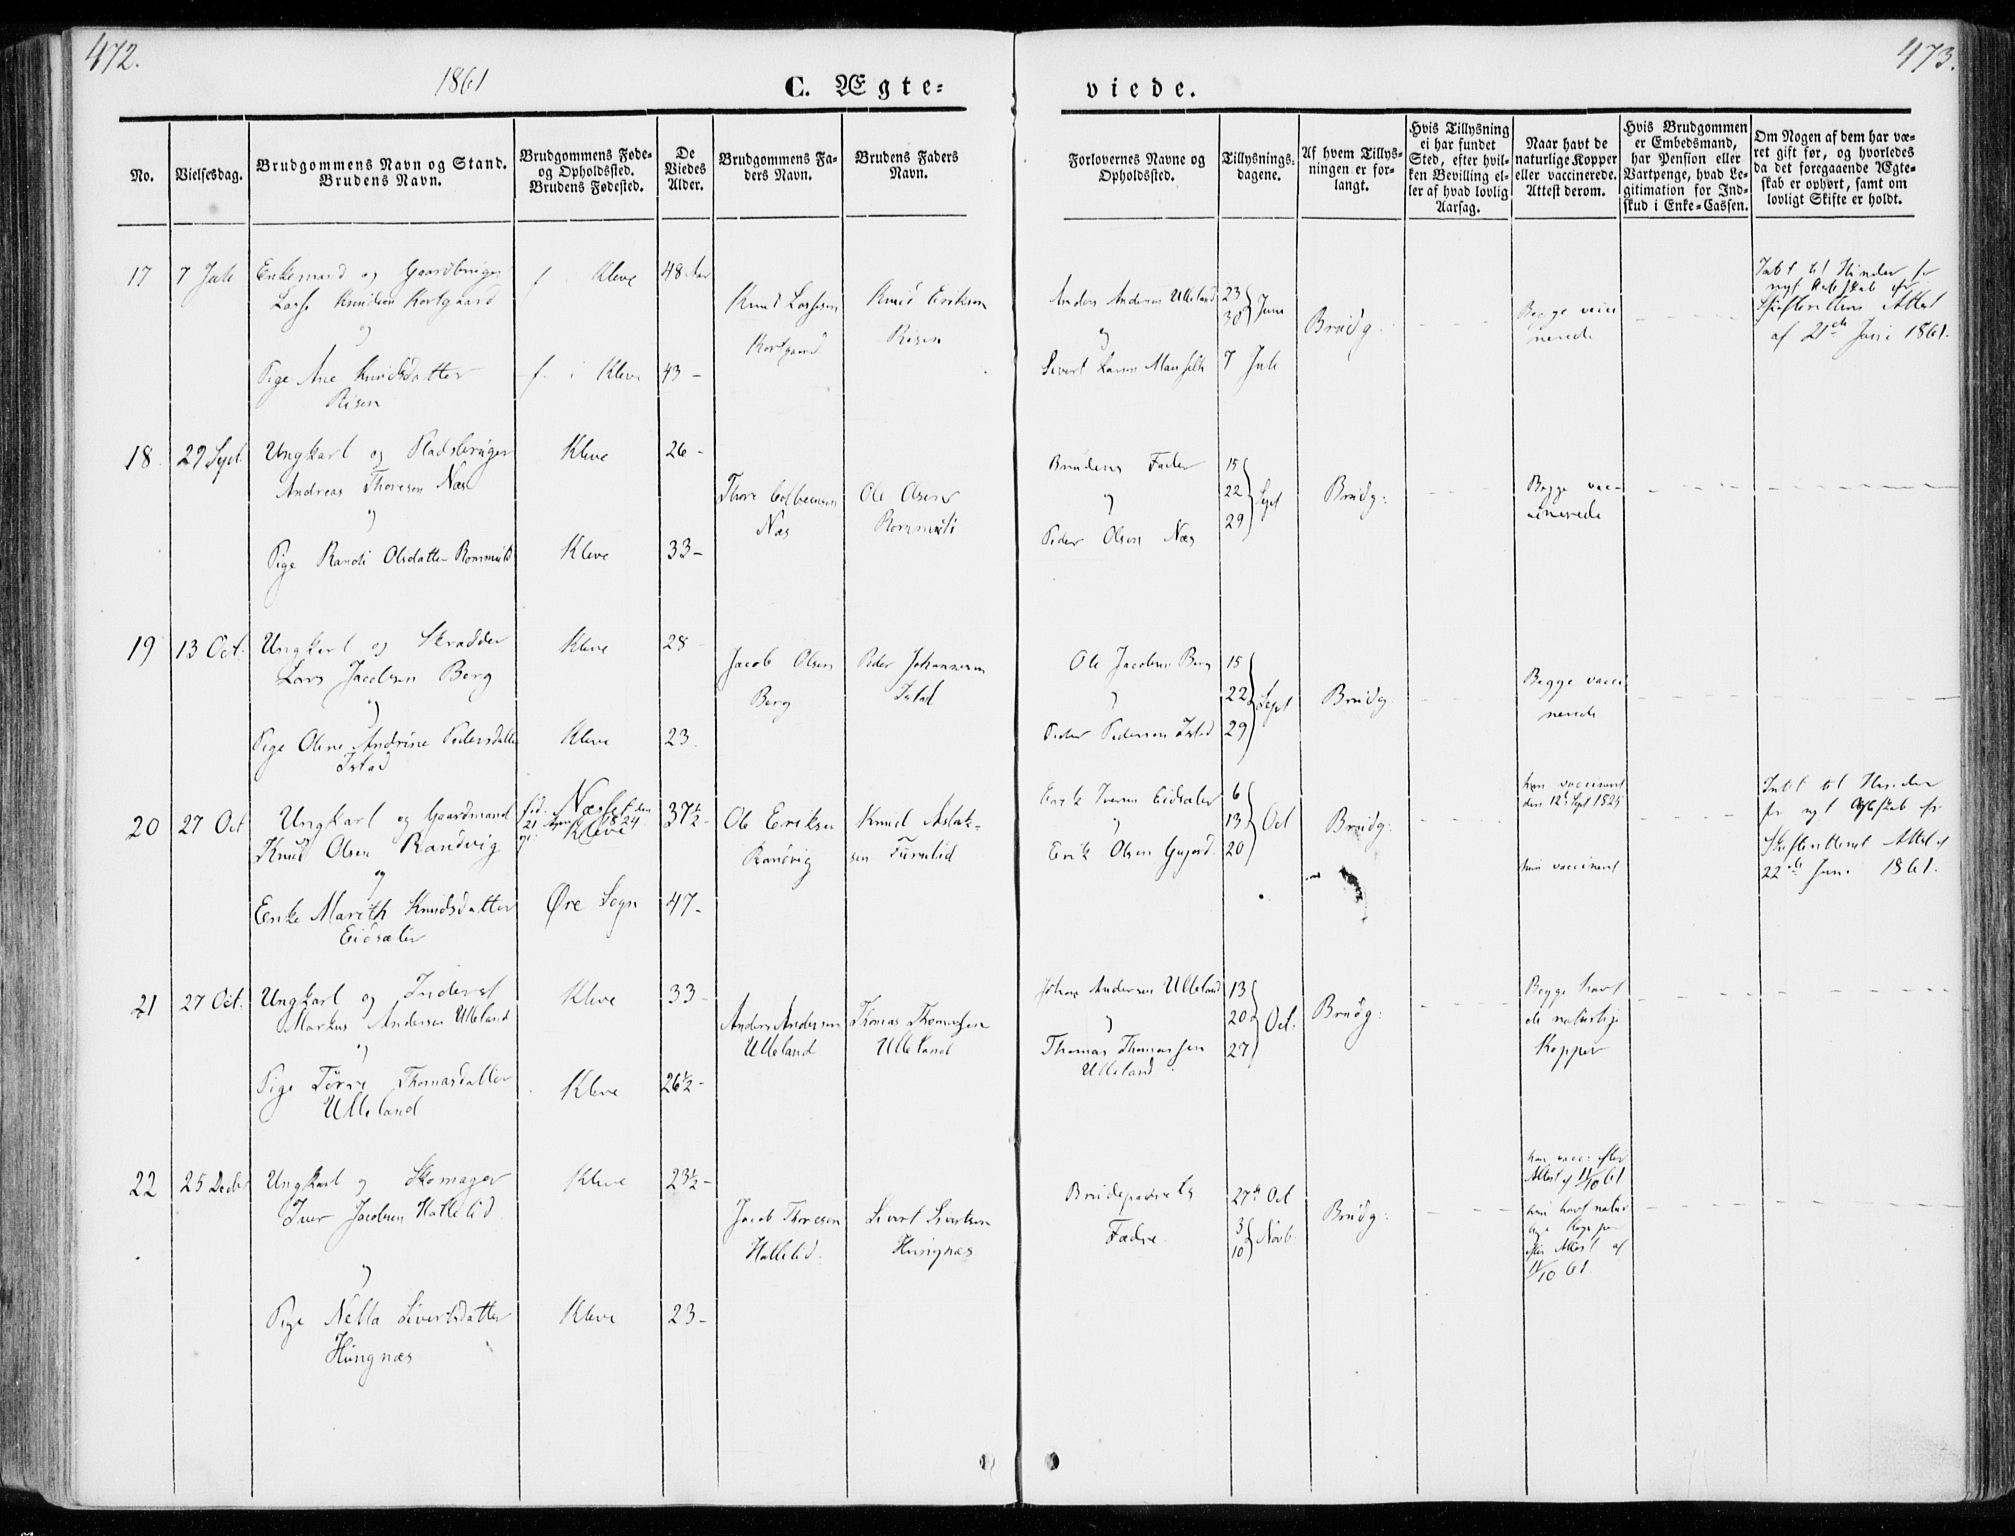 472.
1861
C. Ægte-
No.
Vielsesdag.
Brudgommens Navn og Stand.
Brudens Navn.
Brudgommens Føde-
og Opholdssted.
Brudens Fødested.
De
Viedes
Alder.
Brudgommens Fa-
ders Navn.
Brudens Faders
Navn.
17
7 Juli
Enkemand og Gaardbruger
Lasse Knudsen Kortgaard
og
Pige Ane Knudsdatter
Risen
f. i Kleve
f. i Kleve
48 Aar
43 -
Knud Lassesen
Kortgaard
Knud Eriksen
Risen
18.
29 Sept.
Ungkarl og Pladsbruger
Andreas Thoresen Næs
og
Pige Randi Olsdatter
Kleve
Kleve
26 -
33 -
Thore
Næs
Ole Olsen
19
13 Oct.
Ungkarl og Skrædder
Lars Jacobsen Berg
og
Pige Oline Andrine Pedersdatter
Istad
Kleve
Kleve
28 -
23.
Jacob Olsen
Berg
Peder Johannesen
Istad
20
27 Oct
Ungkarl og Gaardmand
Knud Olsen Randvig
og
Enke Marith Knudsdatter
Eidsæter
fød: Næsset den
21 1824
Kleve
Øre Sogn
37½ -
47 -
Ole Eriksen
Randvig
Knud Aslak-
sen
21
27 Oct.
Ungkarl og Inderst
Markus Andersen Ulleland
og
Pige Thomasdatter
Ulleland
Kleve
Kleve
33 -
26½ -
Anders Andersen
Ulleland
Thomas Thomassen
Ulleland
22
25 Decbr
Ungkarl og Skomager
Iver Jacobsen Hallelid
og
Pige Nella Sivertsdatter
Hungnæs
Kleve
Kleve
23½ -
23 -
Jacob Thoresen
Hallelid.
Sivert Sivertsen
Hungnæs
473.
viede.
Forlovernes Navne og
Opholdssted.
Tillysnings-
dagene.
Af hvem Tillys-
ningen er for-
langt.
Hvis Tillysning
ei har fundet
Sted, efter hvil-
ken Bevilling el-
ler af hvad lovlig
Aarsag.
Naar havt de
naturlige Kopper
eller vaccinerede.
Attest derom.
Hvis Brudgommen
er Embedsmand,
har Pension eller
Vartpenge, hvad Le-
gitimation for Ind-
skud i Enke-Cassen.
Om Nogen af dem har væ-
ret gift før, og hvorledes
da det foregaaende Ægte-
skab er ophørt, samt om
lovligt Skifte er holdt.
Anders Andersen Ulleland
og
Sivert Larsen
23
30 Juni
7 Juli
Brudg.
Begge vacci
nerede
Intet til Hinder for
nyt Ægteskab efr
Skifterettens Attest
af 21de Juni 1861.
Brudens Fader
og
Peder Olsen Næs
15
22 Sept
29
Brudg:
Begge vac-
cinerede
Ole Jacobsen Berg
og
Peder Pedersen Istad
15
22 Sept
29
Brudg:
Begge vacci
nerede
Erik Iversen Eidsæter
og
Erik Olsen
6
13 Oct
20
Brudg:
han vaccineret
den 12 Sept 1825
hun vaccineret
Intet til Hinder
for nyt Ægteskab efr
Skifterettens Attest af
22de Juni 1861.
Johan Andersen Ulleland
og
Thomas Thomassen
Ulleland
13
20 Oct.
27
Brudg:
Begge havt
de naturlige
Kopper
Brudeparrets
Fædre.
27de Oct
3
10 Novb.
Brudg:
han vacc: efter
Attest af 11/10 61
hun havt natur
lige Kopper
efter Attest af
11/10 61